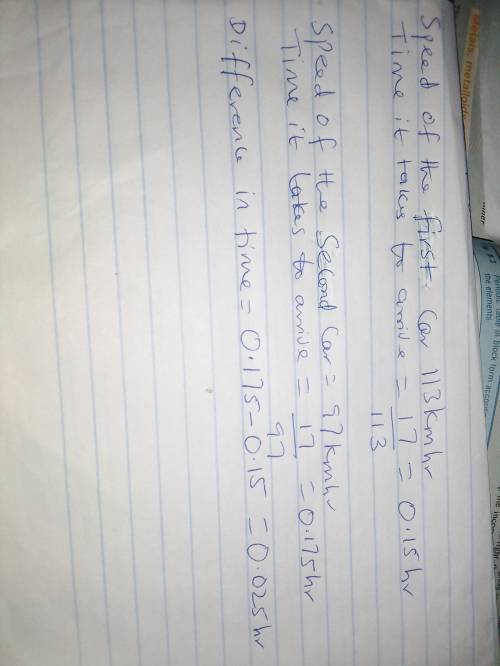 Speed of the first Car 113kmhr
Time it takes to arrive = 17 = 0.15hr
113
Speed of the Second Car = 97kmhr
Time it takes to arrive = 17 = 0.175hr
97
Difference in time = 0.175-0.15 = 0.025hr
Metals, metalloids
the elements
block form